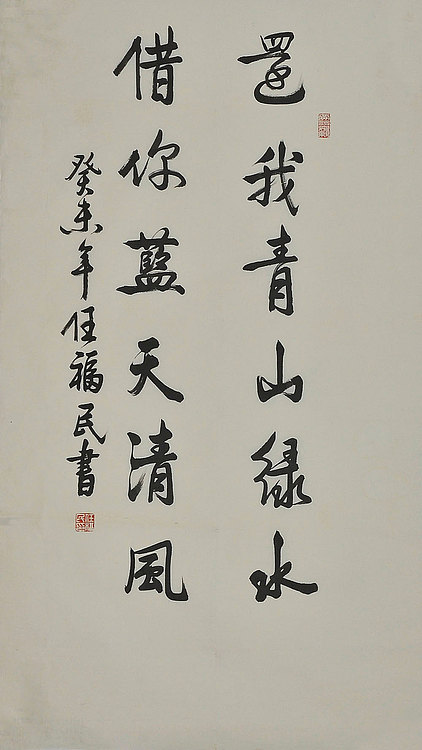 還我青山緑水
借你藍天清風
癸未年任福民書